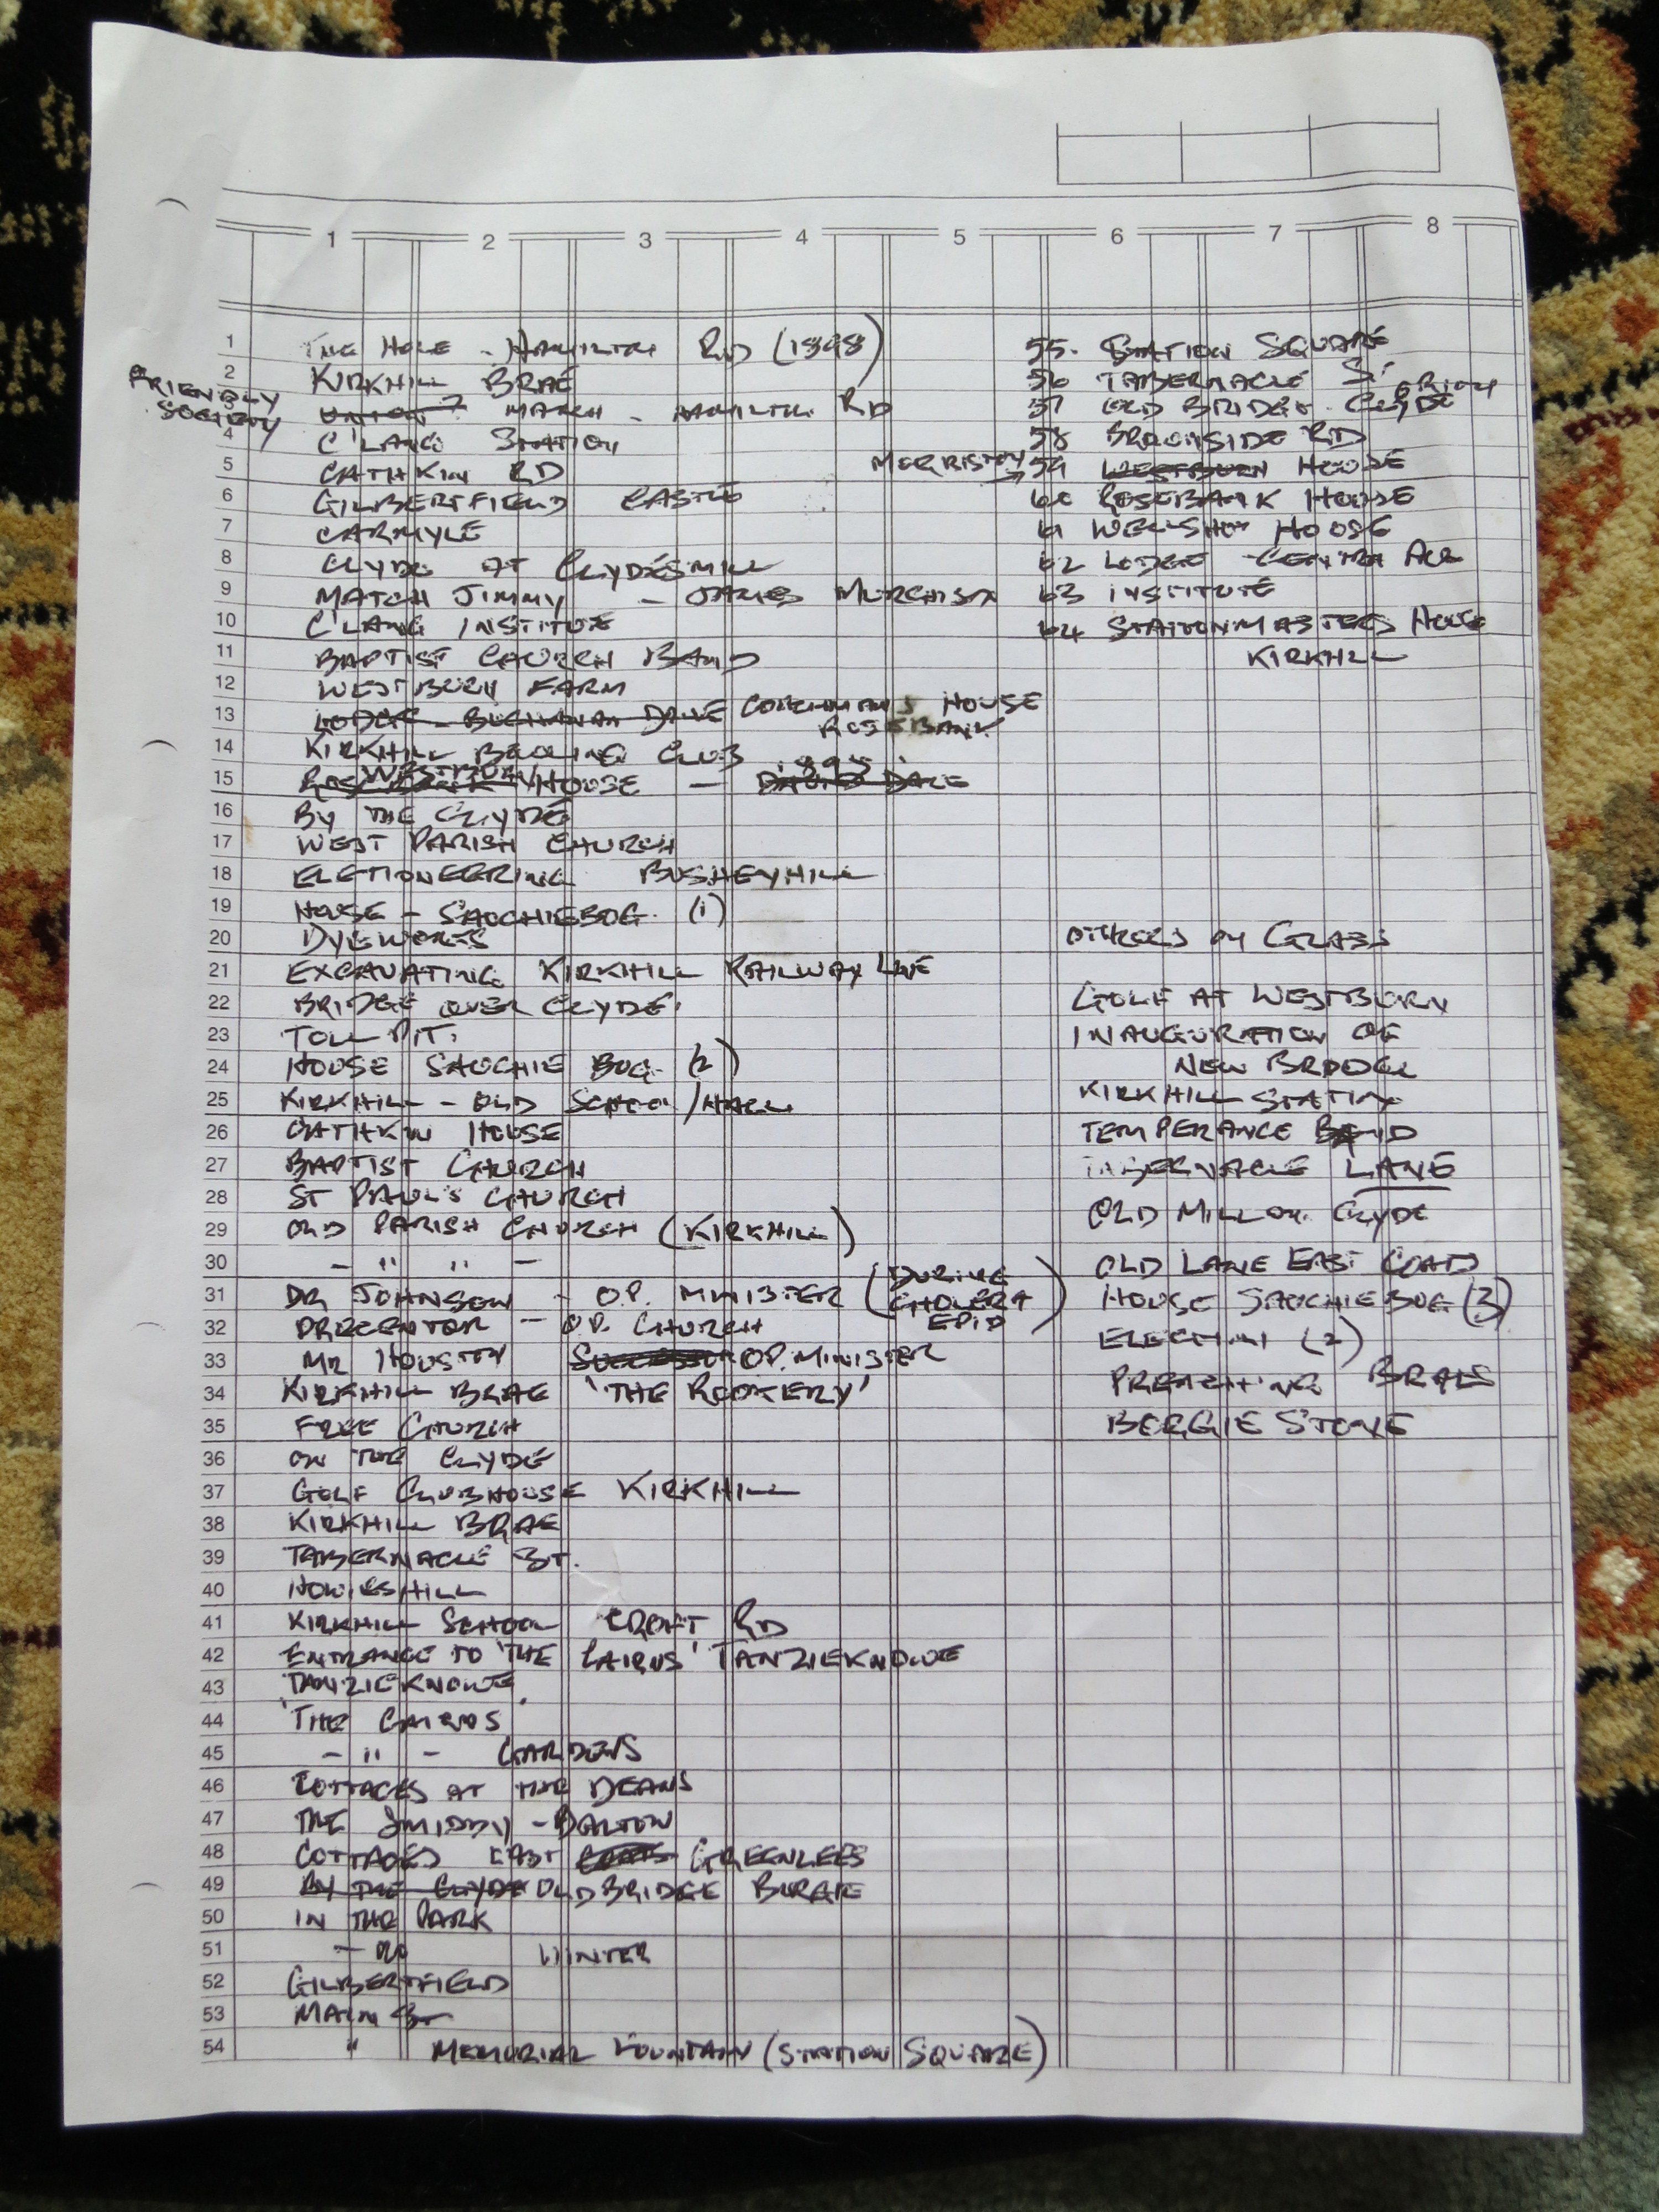 1 2 3 4 5 6 7 8
1 THE HOLE - HAMILTON RD (1898)
2 KIRKHILL BRAE
FRIENDLY SOCIETY
3 UNION? MARCH - HAMILTON RD
4 C'LANG STATION
5 CATHKIN RD
6 GILBERTFIELD CASTLE
7 CARMYLE
8 CLYDE AT CLYDESMILL
9 MATCH JIMMY - JAMES MURCHISON
10 C'LANG INSTITUTE
11 BAPTIST CHURCH BAND
12 WESTBURN FARM
13 LODGE - BUCHANAN DRIVE COACHMAN'S HOUSE ROSEBANK
14 KIRKHILL BOWLING CLUB 1895
15 ROSEBANK WESTBURN HOUSE - DAVID DALE
16 BY THE CLYDE
17 WEST PARISH CHURCH
18 ELETIONEERING BUSHEYHILL
19 HOUSE - SAUCHIEBOG. (1)
20 DYEWORKS
21 EXCAVATING KIRKHILL RAILWAY LINE
22 BRIDGE OVER CLYDE.
23 TOLL PIT.
24 HOUSE SAUCHIE BOG (2)
25 KIRKHILL - OLD SCHOOL/HALL
26 CATHKIN HOUSE
27 BAPTIST CHURCH
28 ST PAUL'S CHURCH
29 OLD PARISH CHURCH (KIRKHILL)
30 - " " -
31 DR JOHNSON - O.P. MINISTER (DURING CHOLERA EPID)
32 PRECENTOR - O.P. CHURCH
33 MR HOUSTON SUCCESSOR O.P. MINISTER
34 KIRKHILL BRAE 'THE ROOKERY'
35 FREE CHURCH
36 ON THE CLYDE
37 GOLF CLUBHOUSE KIRKHILL
38 KIRKHILL BRAE
39 TABERNACLE ST.
40 HOWIESHILL
41 KIRKHILL SCHOOL CROFT RD
42 ENTRANCE TO 'THE CAIRNS' TANZIEKNOWE
43 TANZIEKNOWE
44 'THE CAIRNS'
45 - " - GARDENS
46 COTTAGES AT THE DEANS
47 THE SMIDDY - DALTON
48 COTTAGES EAST GREENLEES
49 BY THE CLYDE OLD BRIDGE
50 IN THE PARK
51 - DO WINTER
52 GILBERTFIELD
53 MAIN ST
54 " MEMORIAL FOUNTAIN (STATION SQUARE)
55. STATION SQUARE
56 TABERNACLE ST
57 OLD BRIDGE - CLYDE
58 BROWNSIDE RD
MORRISTON 59 WESTBURN HOUSE
60 ROSEBANK HOUSE
61 WELLSHOT HOUSE
62 LODGE - CENTRAL AVE
63 INSTITUTE
64 STATIONMASTERS HOUSE
KIRKHILL
OTHERS ON GLASS
GOLF AT WESTBURN
INAUGURATION OF
NEW BRIDGE
KIRKHILL STATION
TEMPERANCE BAND
TABERNACLE LANE
OLD MILL ON CLYDE
OLD LANE EAST COATS
HOUSE SAUCHIEBOG (3)
ELECTION (2)
PREACHING BRAES
BORGIE STONE